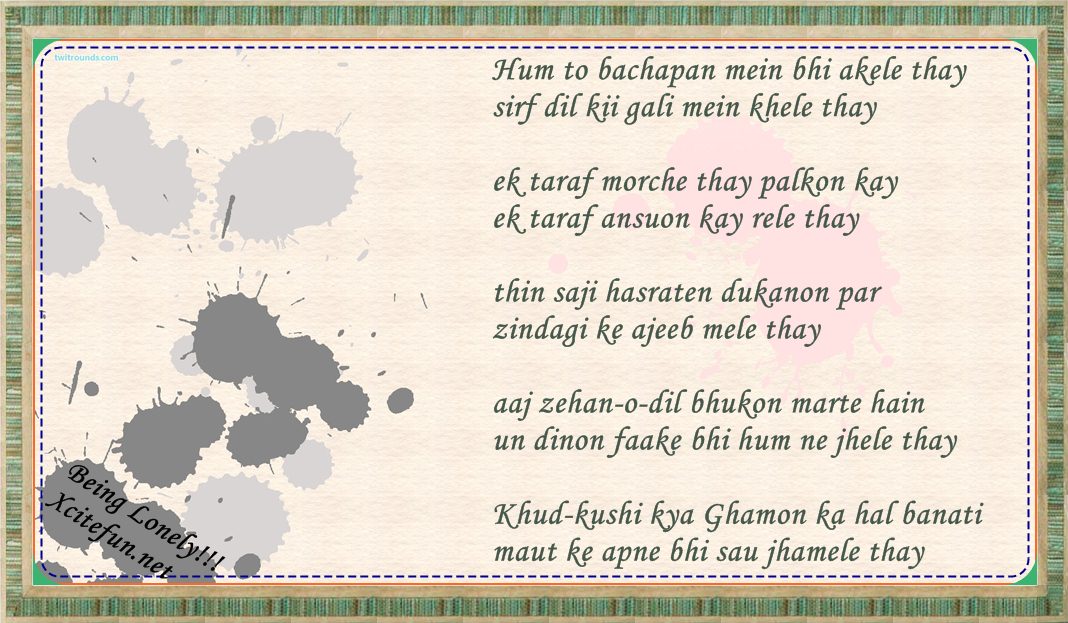 twitrounds.com
Hum to bachapan mein bhi akele thay
sirf dil kii gali mein khele thay
ek taraf morche thay palkon kay
ek taraf ansuon kay rele thay
thin saji hasraten dukanon par
zindagi ke ajeeb mele thay
aaj zehan-o-dil bhukon marte hain
un dinon faake bhi hum ne jhele thay
Khud-kushi kya Ghamon ka hal banati
maut ke apne bhi sau jhamele thay
Being Lonely!!!
Xcitefun.net